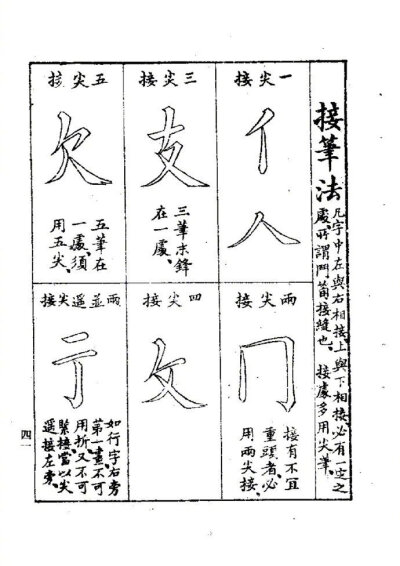 接筆法
凡字中左與右相接、上與下相接、必有一定之
處、所謂鬥筍接縫也、接處多用尖筆、
一尖接
亻
人
兩尖接
冂
接有不宜
重頭者、必
用兩尖接、
三尖接
支
三筆末鋒
在一處、
四尖接
攵
五尖接
欠
五筆在
一處、須
用五尖、
兩並遥尖接
亍
如行字、右旁
第一畫不可
用折、又不可
緊接、當以尖
遥接左旁、
四一